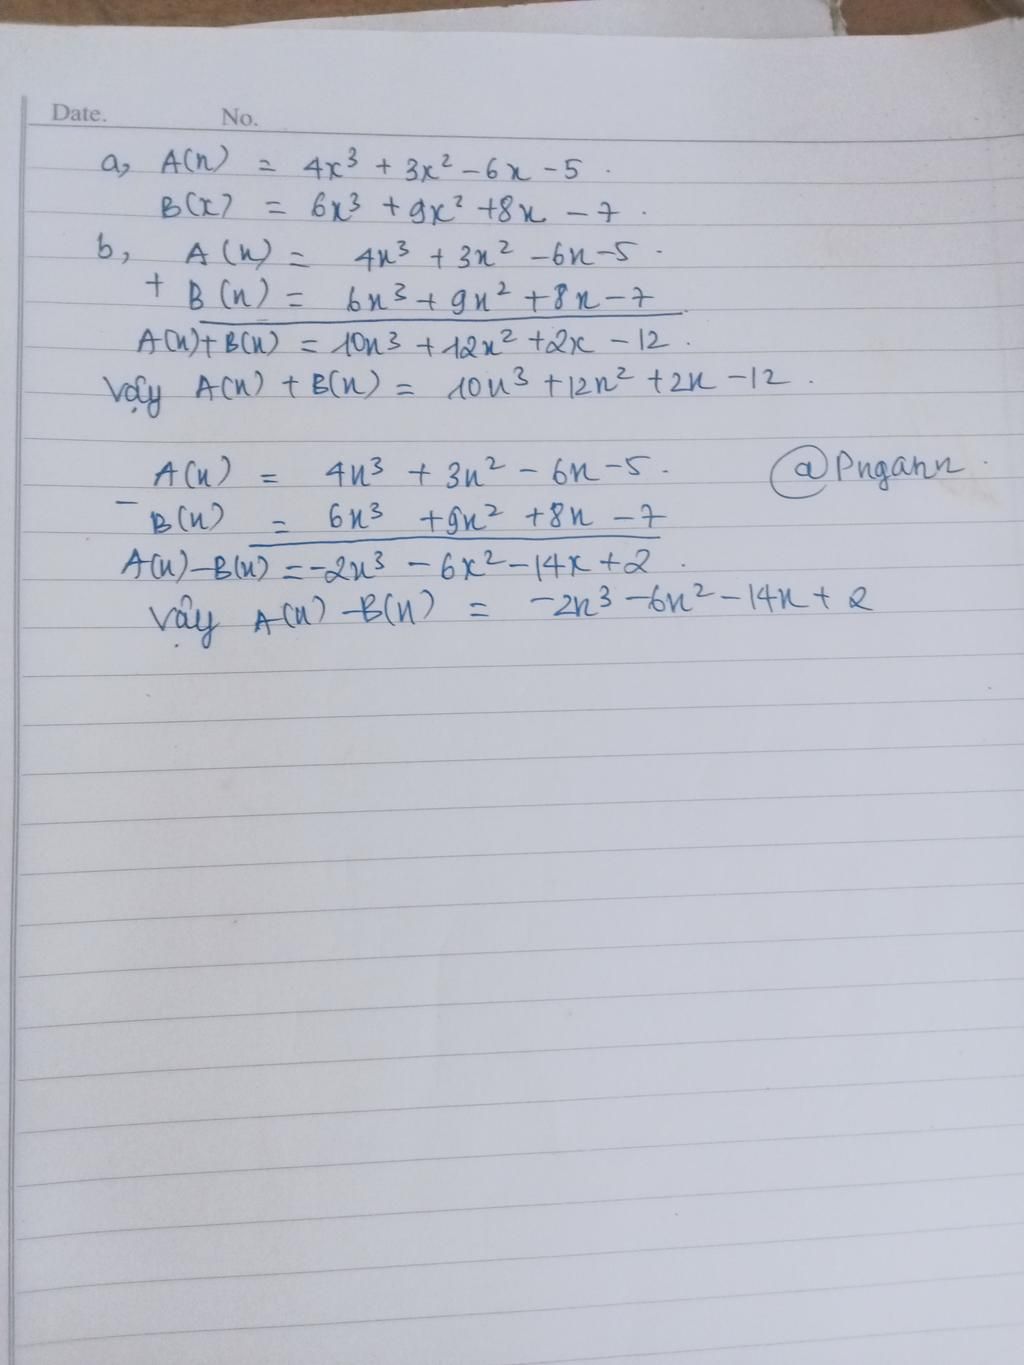 Date. No.
a, A(x) = 4x³ + 3x² - 6x - 5.
B(x) = 6x³ + 9x² + 8x - 7.
b, A(x) = 4x³ + 3x² - 6x - 5.
+ B(x) = 6x³ + 9x² + 8x - 7
A(x) + B(x) = 10x³ + 12x² + 2x - 12.
Vậy A(x) + B(x) = 10x³ + 12x² + 2x - 12.
A(x) = 4x³ + 3x² - 6x - 5. @Pngann.
- B(x) = 6x³ + 9x² + 8x - 7
A(x) - B(x) = -2x³ - 6x² - 14x + 2.
Vậy A(x) - B(x) = -2x³ - 6x² - 14x + 2